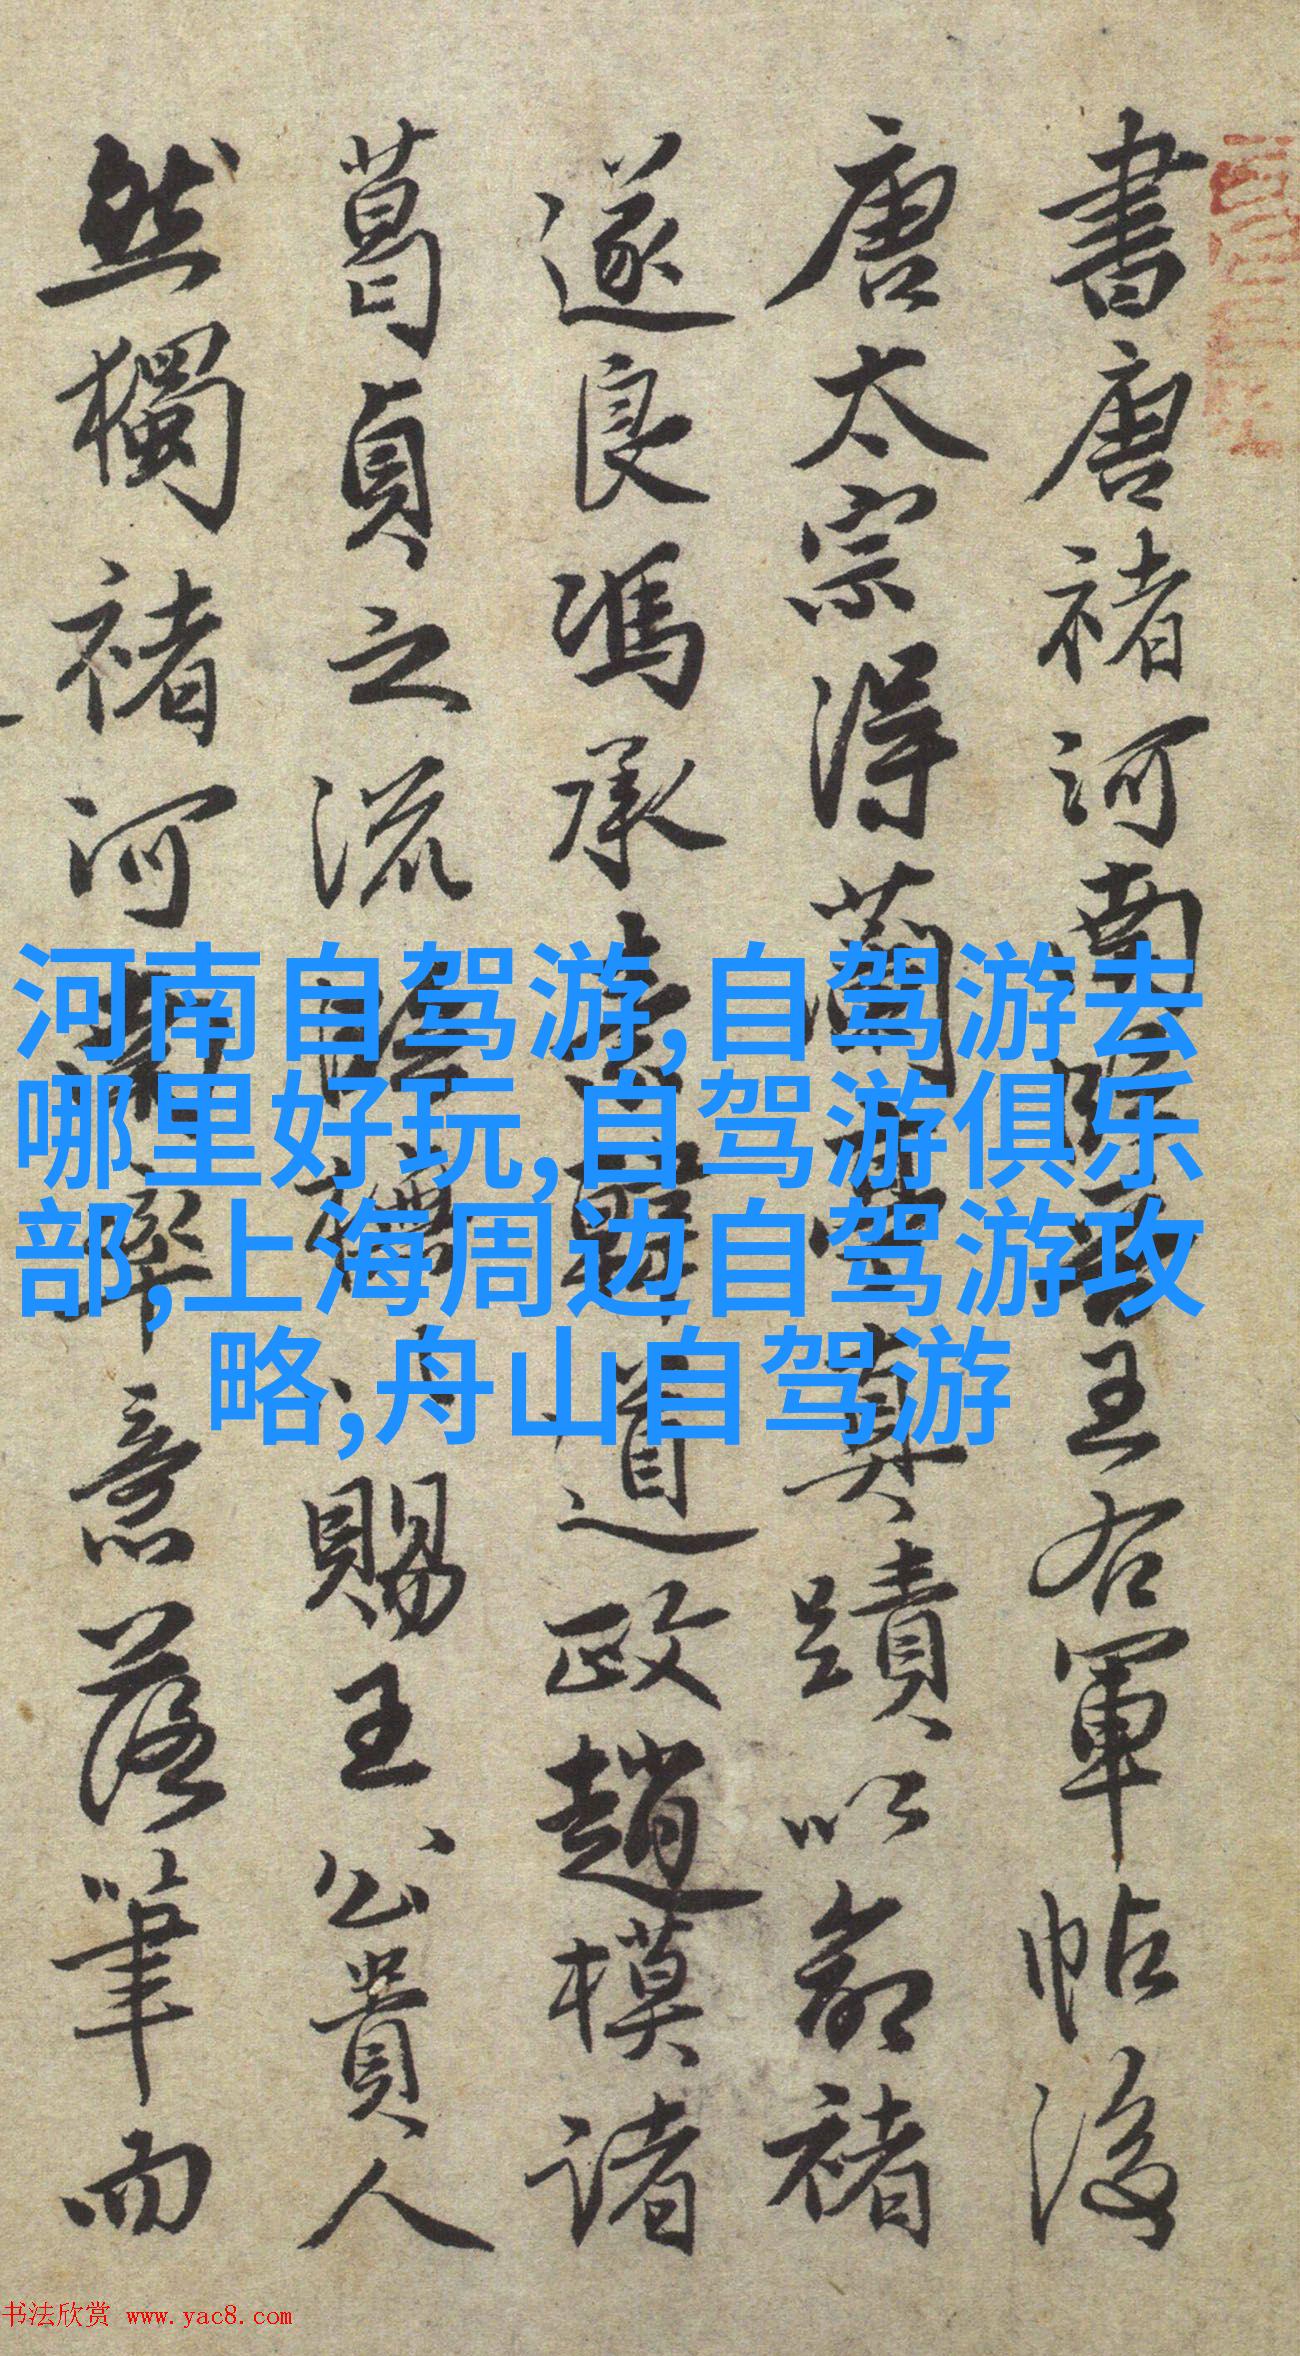 書唐褚河南臨晋王右軍帖後
唐太宗得蘭亭真蹟以命褚
遂良馮承素韓道政趙模諸
葛貞之流臨搨以賜王公貴人
然獨褚河南率意落筆而
河南自驾游,自驾游去
哪里好玩,自驾游俱乐
部,上海周边自驾游攻
略,舟山自驾游
书法欣赏 www.yac8.com